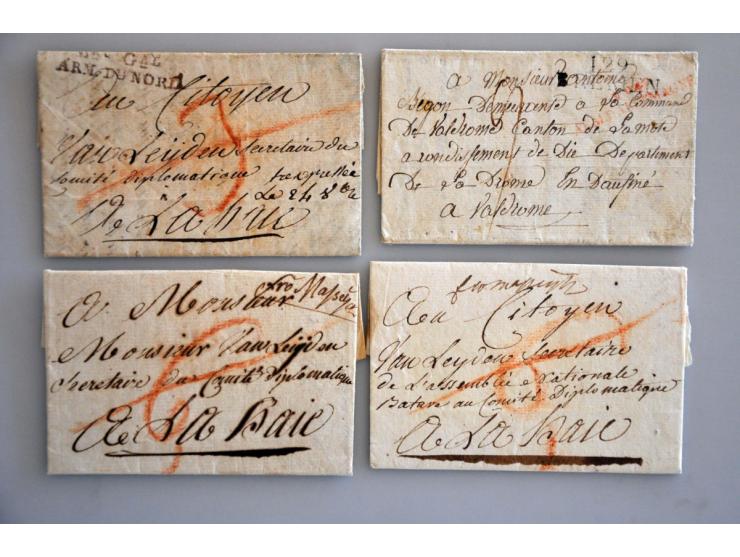 GAL
ARM. DU NORD
Au Citoyen
Van Leijden Secretaire du
Comité diplomatique très pressée
Le 24 8bre
A La haie
129
a Monsieur antoine
Begon Demeurante a La Command
De Valdrome Canton de Lamote
arondissement de Die Departement
De La Drome En Daufiné
a Valdrome
A Monsieur
Monsieur Van Leijden
Secretaire du Comité Diplomatique
A La haie
Au Citoyen
Van Leyden Secretaire
de L'assemblée Nationale
Batave au Comité Diplomatique
A La haie